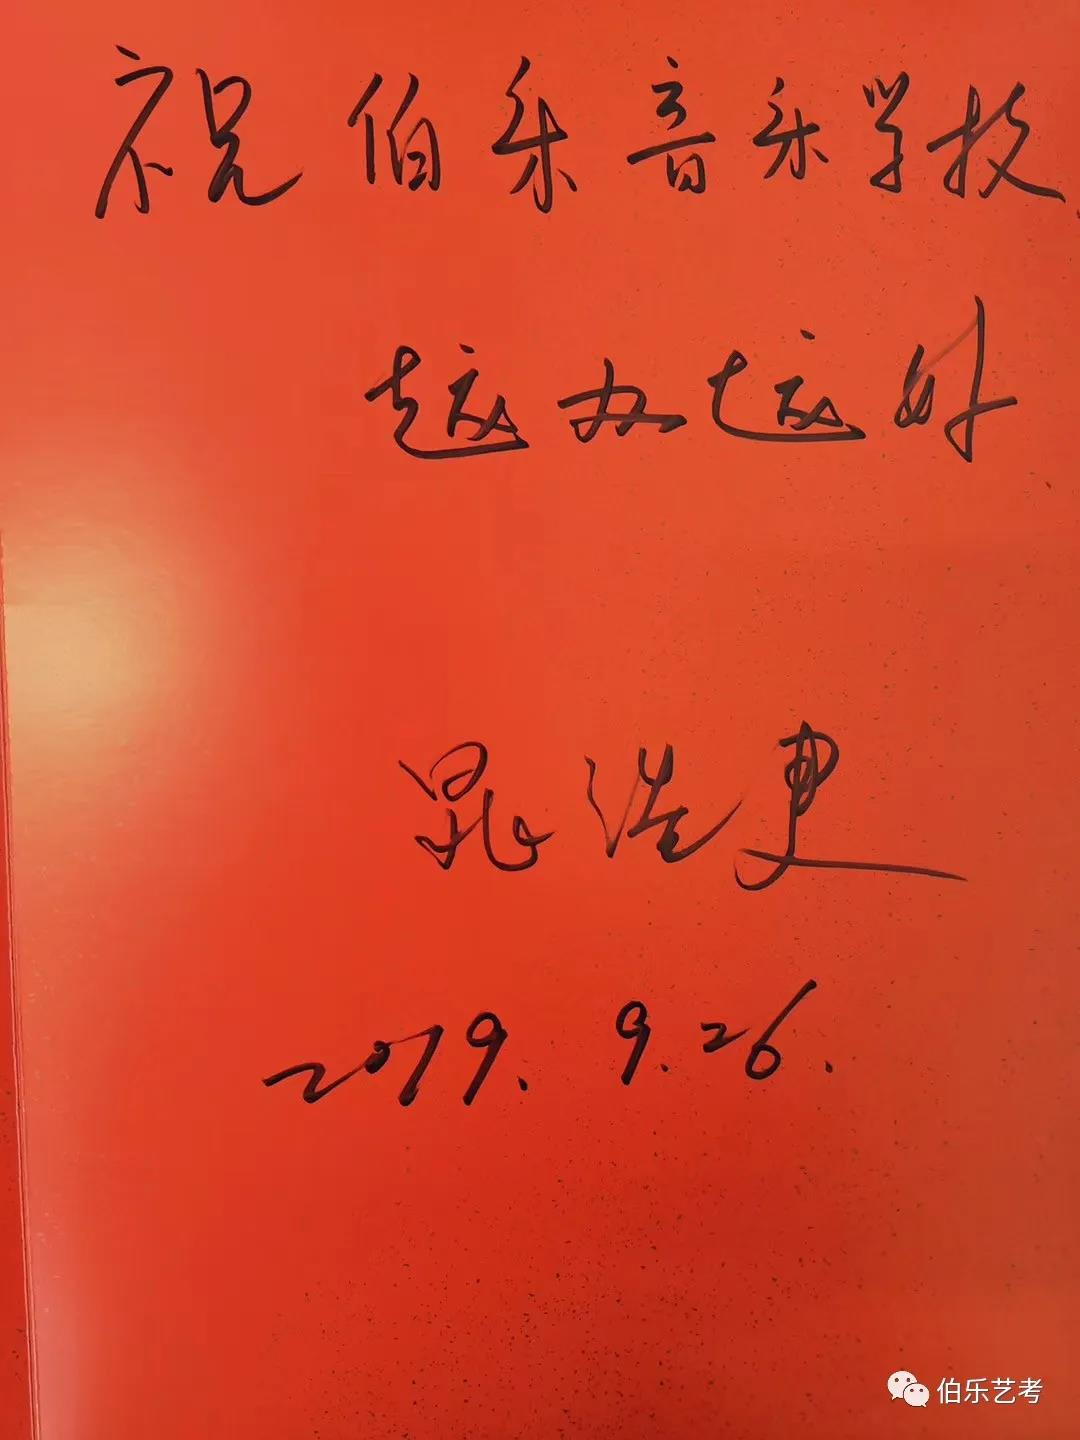 祝伯乐音乐学校
越办越好
晁浩建
2019.9.26.
伯乐艺考